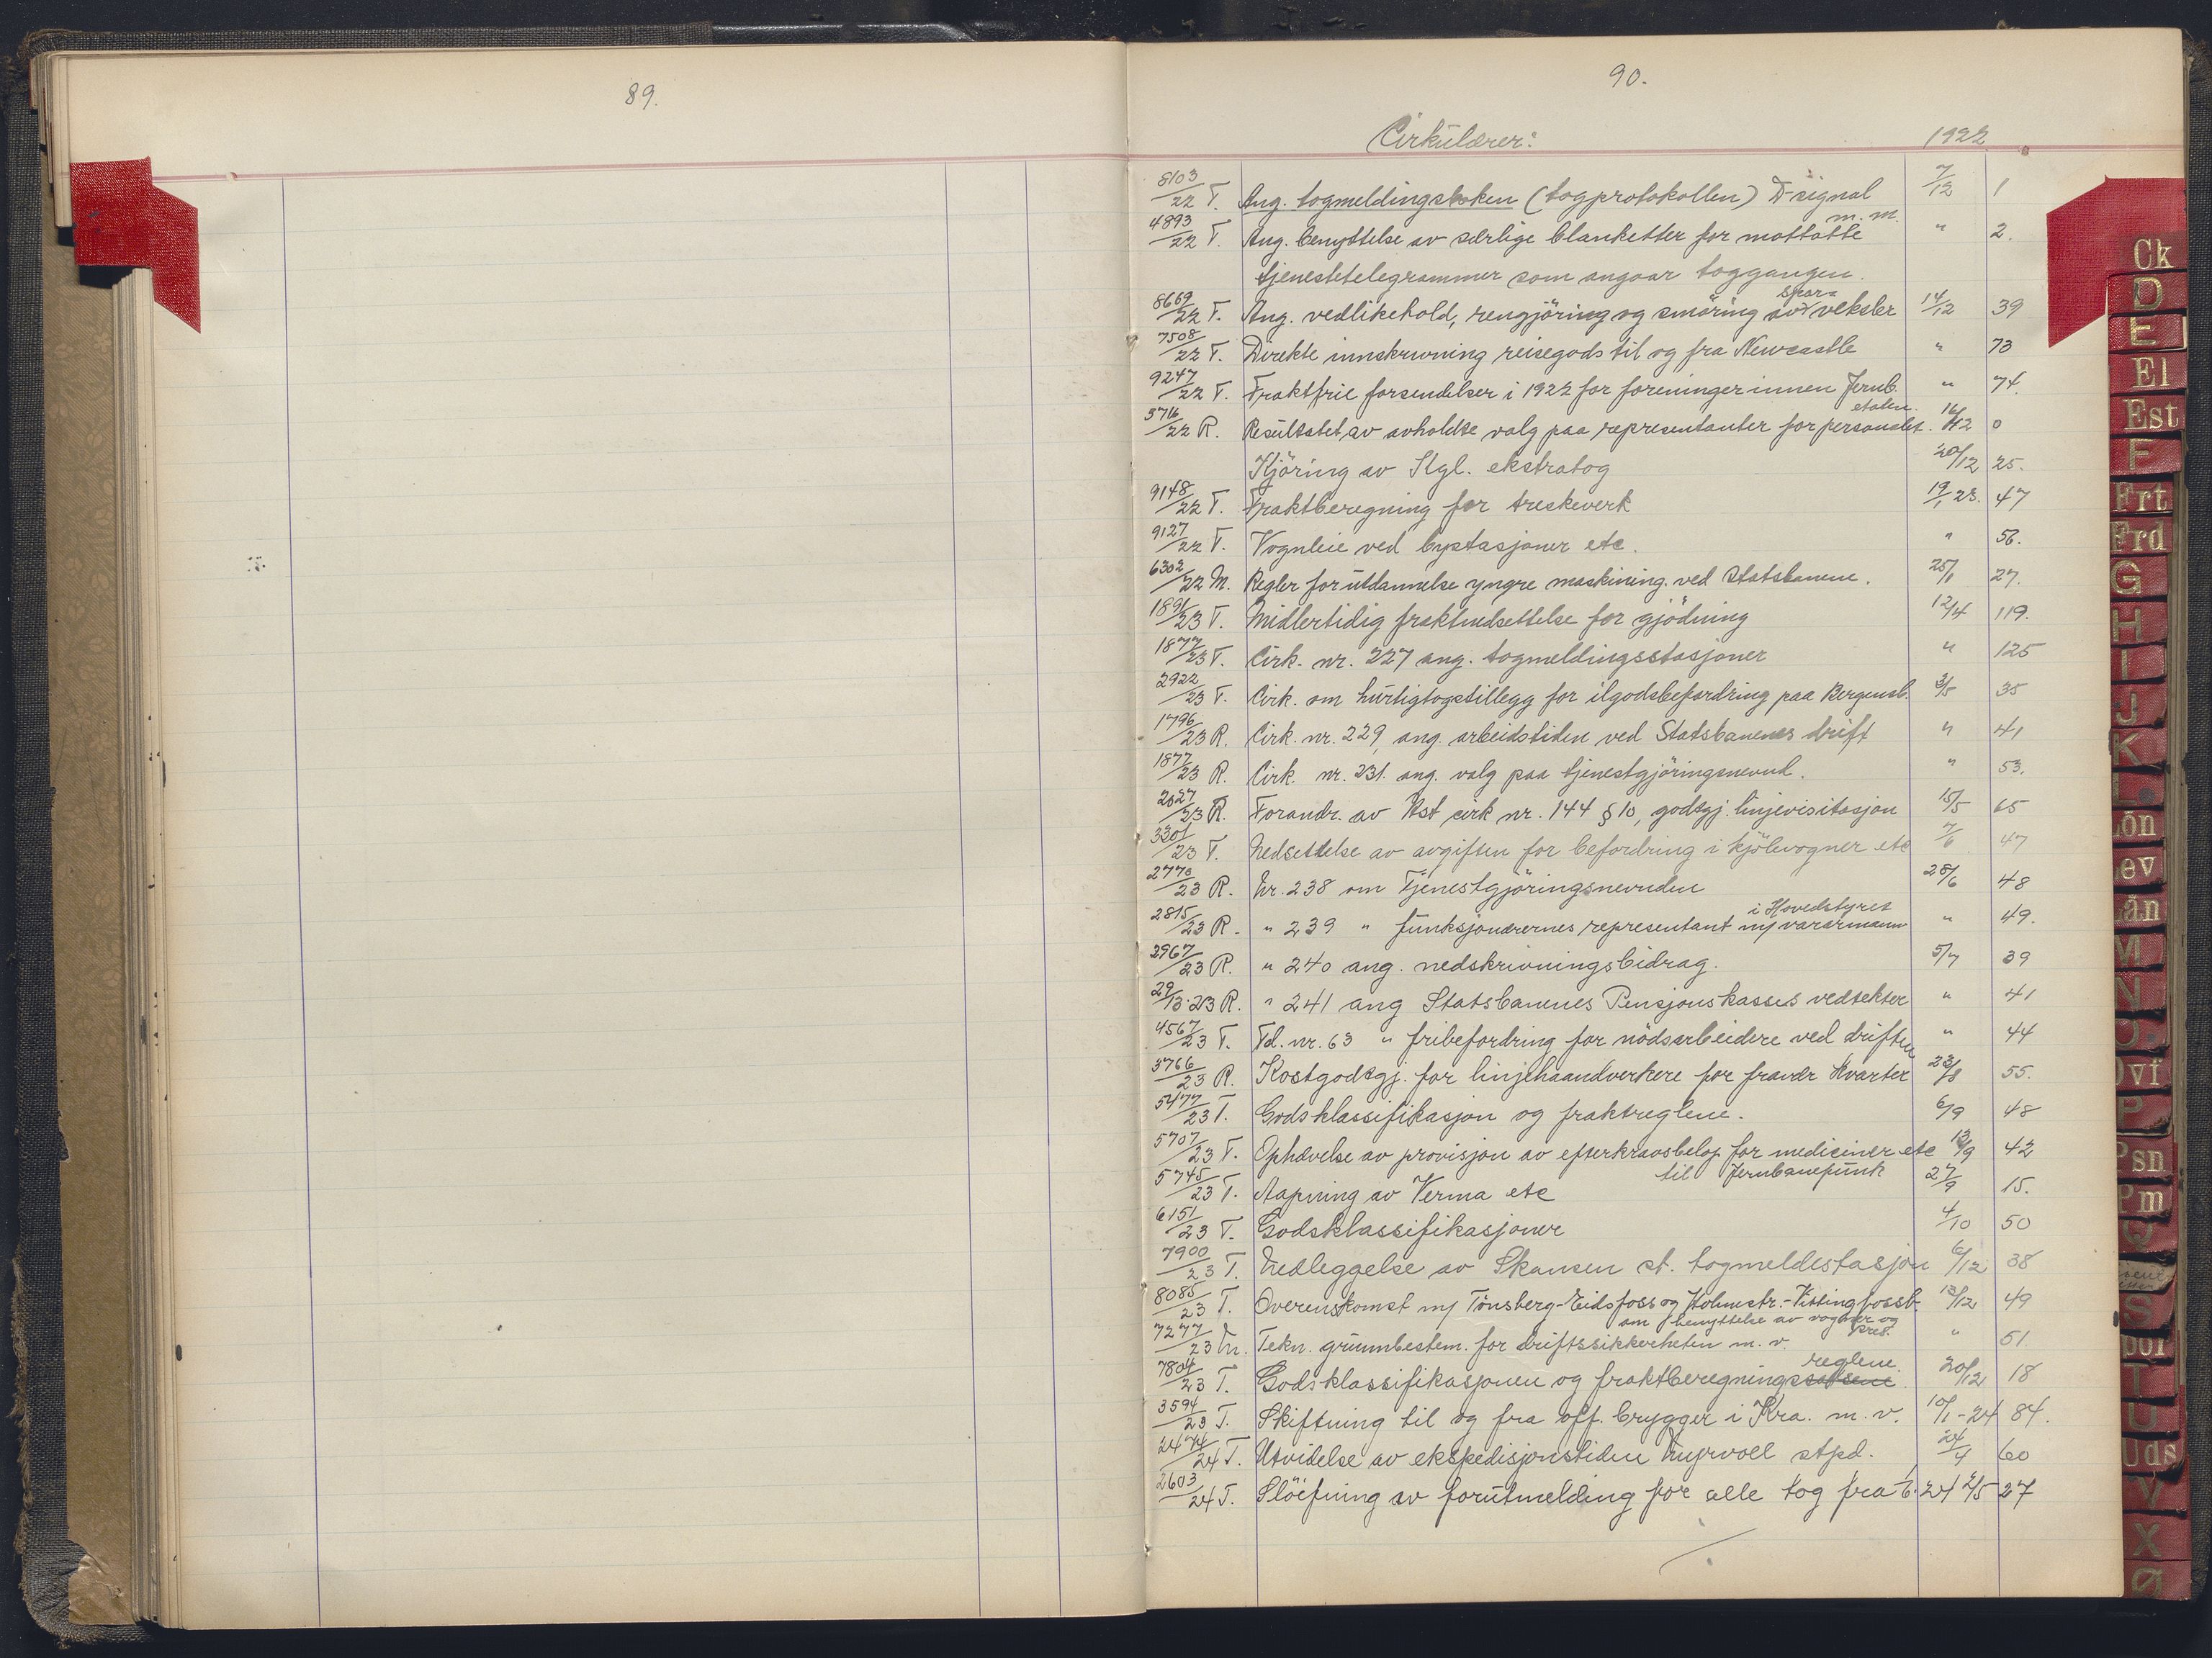 89.
90.
Cirkulærer: 1922
8103/22 T. Ang. togmeldingsboken (togprotokollen) D-signal m.m. 7/12 1
4893/22 T. Ang. benyttelse av særlige blanketter for mottatte " 2.
tjenestetelegrammer som angaar toggangen.
8669/22 T. Ang. vedlikehold, rengjöring og smöring av spor= veksler 14/12 39
7508/22 T. Direkte innskrivning reisegods til og fra Newcastle " 73
9247/22 T. Fraktfrie forsendelser i 1922 for foreninger innen Jernb. etaten. " 74.
3716/22 R. Resultatet av avholdte valg paa representanter for personalet. 16/12 0
Kjöring av Kgl. ekstratog 20/12 25.
9148/22 T. Fraktberegning for treskeverk 19/1 23. 47
9127/22 T. Vognleie ved bystasjoner etc. " 56.
6302/22 M. Regler for utdannelse yngre maskining. ved Statsbanene. 25/1 27.
1891/23 T. Midlertidig fraktnedsettelse for gjödning 12/4 119.
1877/23 T. Cirk. nr. 227 ang. togmeldingsstasjoner " 125
2922/23 T. Cirk. om hurtigtogstillegg for ilgodsbefordring paa Bergensb. 3/5 35
1796/23 R. Cirk. nr. 229, ang. arbeidstiden ved Statsbanenes drift " 41
1877/23 R. Cirk. nr. 231. ang. valg paa tjenestgjöringsnevnd. " 53.
2627/23 R. Forandr. av Hst cirk nr. 144 § 10, godtgj. linjevisitasjon 15/5 65
3301/23 T. Nedsettelse av avgiften for befordring i kjölevogner etc 7/6 47
2770/23 R. Nr. 238 om Tjenestgjöringsnevnden 28/6 48
2815/23 R. " 239 " funksjonærernes representant i Hovedstyret m/ vararmann " 49.
2967/23 R. " 240 ang. nedskrivningsbidrag. 5/7 39
29/13-23 R. " 241 ang Statsbanenes Pensjonskasses vedtekter " 41
4567/23 T. Td. nr. 63 " fribefordring for nödsarbeidere ved driften " 44
3766/23 R. Kostgodtgj. for linjehaandverkere for fravær kvarter 23/8 55.
5477/23 T. Godsklassifikasjon og fraktreglene. 6/9 48
5707/23 T. Ophævelse av provisjon av efterkravsbelop for mediciner etc til Jernbanepunk 13/9 42
5745/23 T. Aapning av Verma etc 27/9 15.
6151/23 T. Godsklassifikasjoner 4/10 50
7900/23 T. Nedleggelse av Skansen st. togmeldestasjon 6/12 38
8085/23 T. Overenskomst m/ Tönsberg-Eidsfoss og Holmestr.-Vittingfossb. om benyttelse av vogner og pres. 13/12 49
7277/23 M. Tekn. grunnbestem. for driftssikkerheten m. v. " 51
7804/23 T. Godsklassifikasjonen og fraktberegningssatsene reglene. 20/12 18
3594/23 T. Skiftning til og fra off. brygger i Kra. m. v. 10/1-24 84.
2474/24 T. Utvidelse av ekspedisjonstiden Nyrvoll stpd. 24/4 60
2603/24 T. Slöifning av forutmelding for alle tog fra 1/6-24 2/5 27
Ck
D
E
El
Est
F
Frt
Frd
G
H
I
J
K
L
Lön
Lev
Lån
M
N
O
Ovf
P
Psn
Pm
Q
S
Spor
T
U
Uds
V
X
Ø